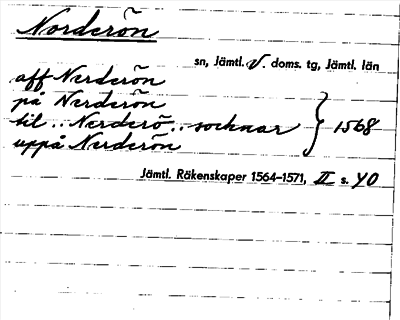 Norderön
sn, Jämtl. V. doms. tg, Jämtl. län
aff Nerderön
på Nerderön
til .. Nerderö .. socknar } 1568
uppå Nerderön
Jämtl. Räkenskaper 1564–1571, II s. 40